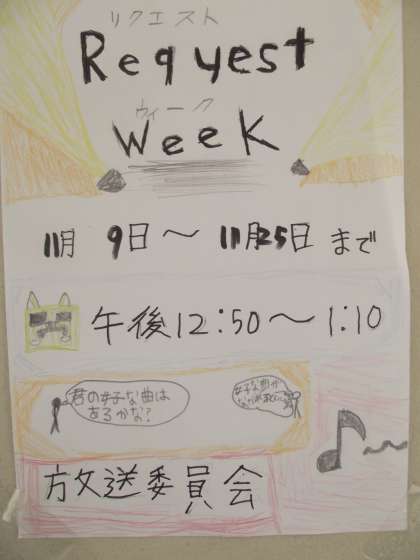 リクエスト
Reqyest
ウィーク
Week
11月 9日〜 11月25日 まで
午後12:50〜1:10
君の好な曲は
あるかな?
好な曲が
放送委員会